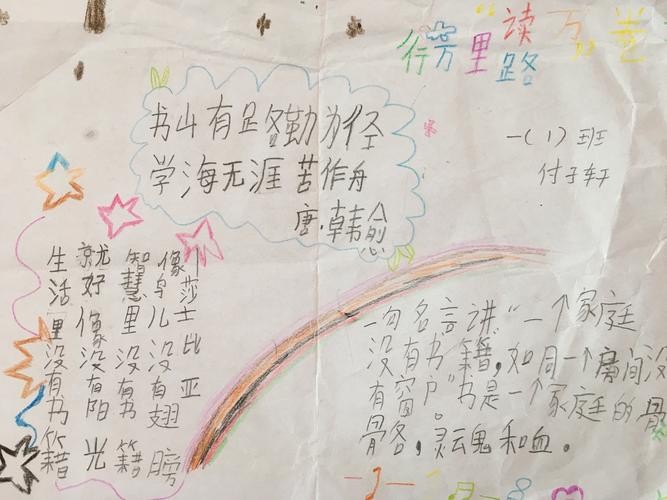 “读万”卷
行万里路
书山有路勤为径
学海无涯苦作舟
唐.韩愈
一(1)班
付子轩
生活里没有书籍
就好像没有阳光
智慧里没有书籍
像鸟儿没有翅膀
—莎士比亚
一句名言讲“一个家庭
没有书籍,如同一个房间没
有窗户”。书是一个家庭的骨
骼,灵魂和血。